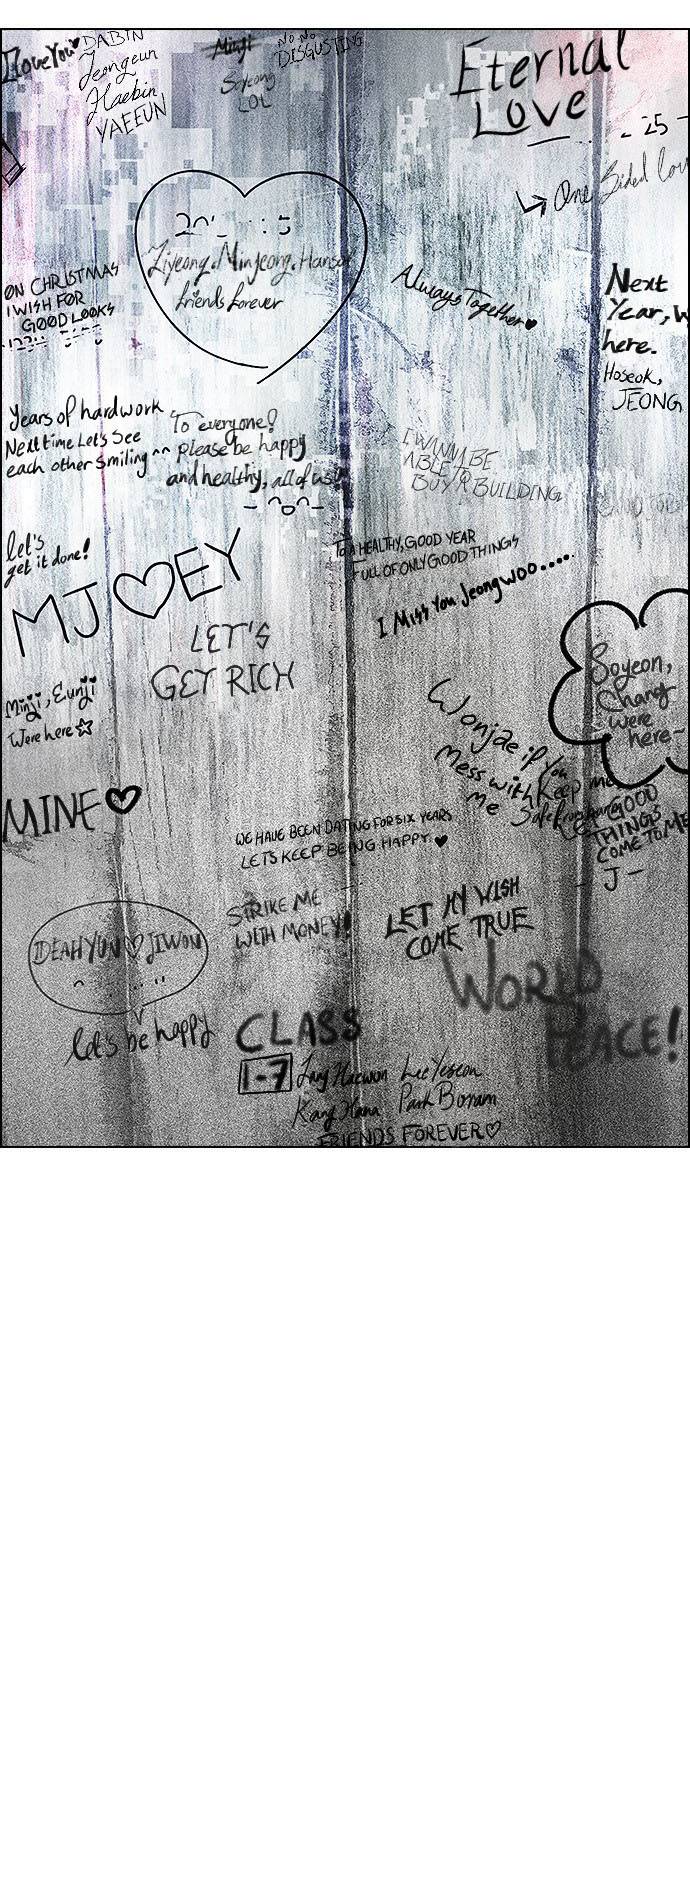 I love You♥
DABIN
Jeongeun
Haebin
YAEEUN
Minji
Soyeong
LOL
NO NO
DISGUSTING
Eternal
Love
- 25 -
One Sided lov
Ziyeong. Minjeong. Hansol
friends forever
ON CHRISTMAS
I WISH FOR
GOOD LOOKS
Always Together♥
Next
Year, W
here.
Hoseok,
JEONG
Years of hard work
Next time Let's See
each other smiling ^^
To everyone!
please be happy
and healthy, all of us!
I WANNA BE
ABLE TO
BUY A BUILDING
let's
get it done!
MJ♡EY
TO A HEALTHY, GOOD YEAR
FULL OF ONLY GOOD THINGS
I Miss You Jeongwoo.....
LET'S
GET RICH
Minji, Eunji
Were here☆
Soyeon,
Chang
were
here~
Wonjae if you
mess with
me
Keep me
Safe from
GOOD
THINGS
COME TO ME
- J -
MINE♡
WE HAVE BEEN DATING FOR SIX YEARS
LETS KEEP BEING HAPPY ♥
STRIKE ME
WITH MONEY!
LET MY WISH
COME TRUE
DEAHYUN♡JIWON
let's be happy
WORLD
PEACE!
CLASS
1-7
Jang Haewon Lee Yeseon
Kang Hana Park Boram
FRIENDS FOREVER♡